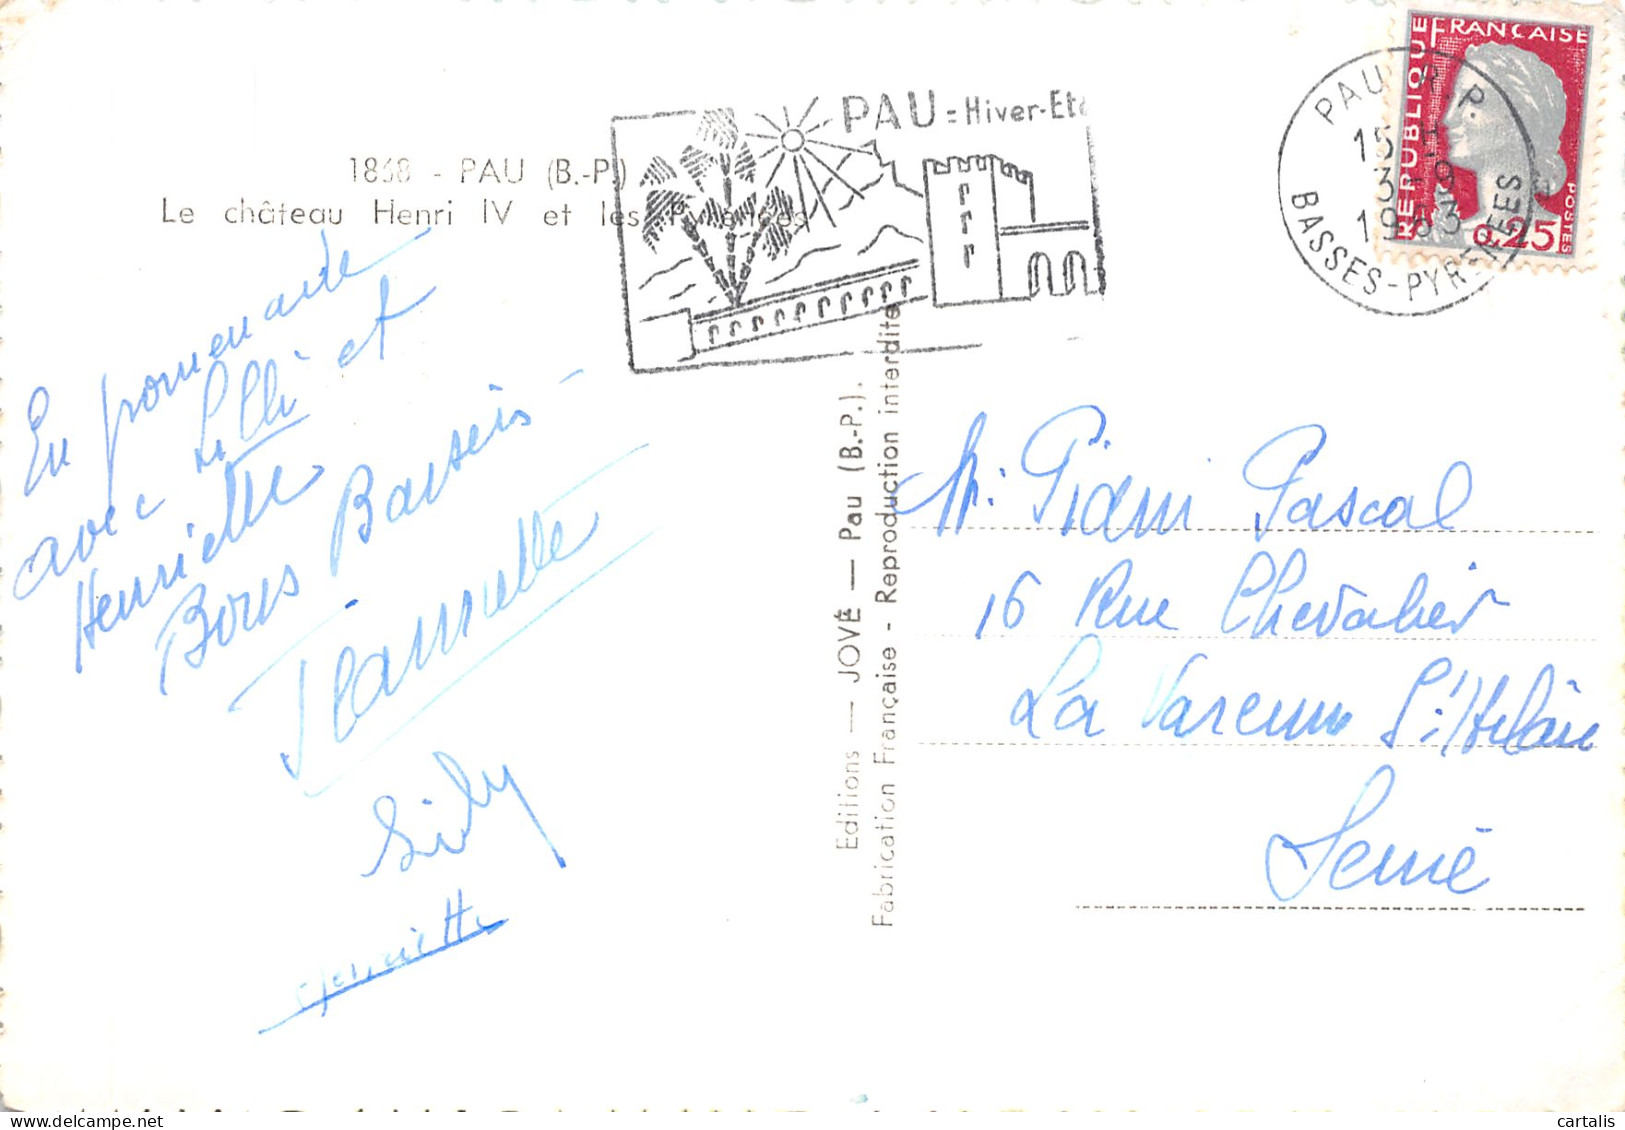 1868 - PAU (B.-P.)
Le château Henri IV et les Pyrénées
PAU = Hiver-Eté
PAU R.P.
15 H
3 - 9
1963
BASSES-PYRENEES
REPUBLIQUE FRANÇAISE
0,25
POSTES
En promenade
avec Lilli et
Henriette
Bons Baisers
Jeannette
Lily
Henriette
Editions — JOVÉ — Pau (B.-P.).
Fabrication Française - Reproduction interdite
M: Pidni Pascal
16 Rue Chevalier
La Varenne St: Hilaire
Seine
cartalis
delcampe.net